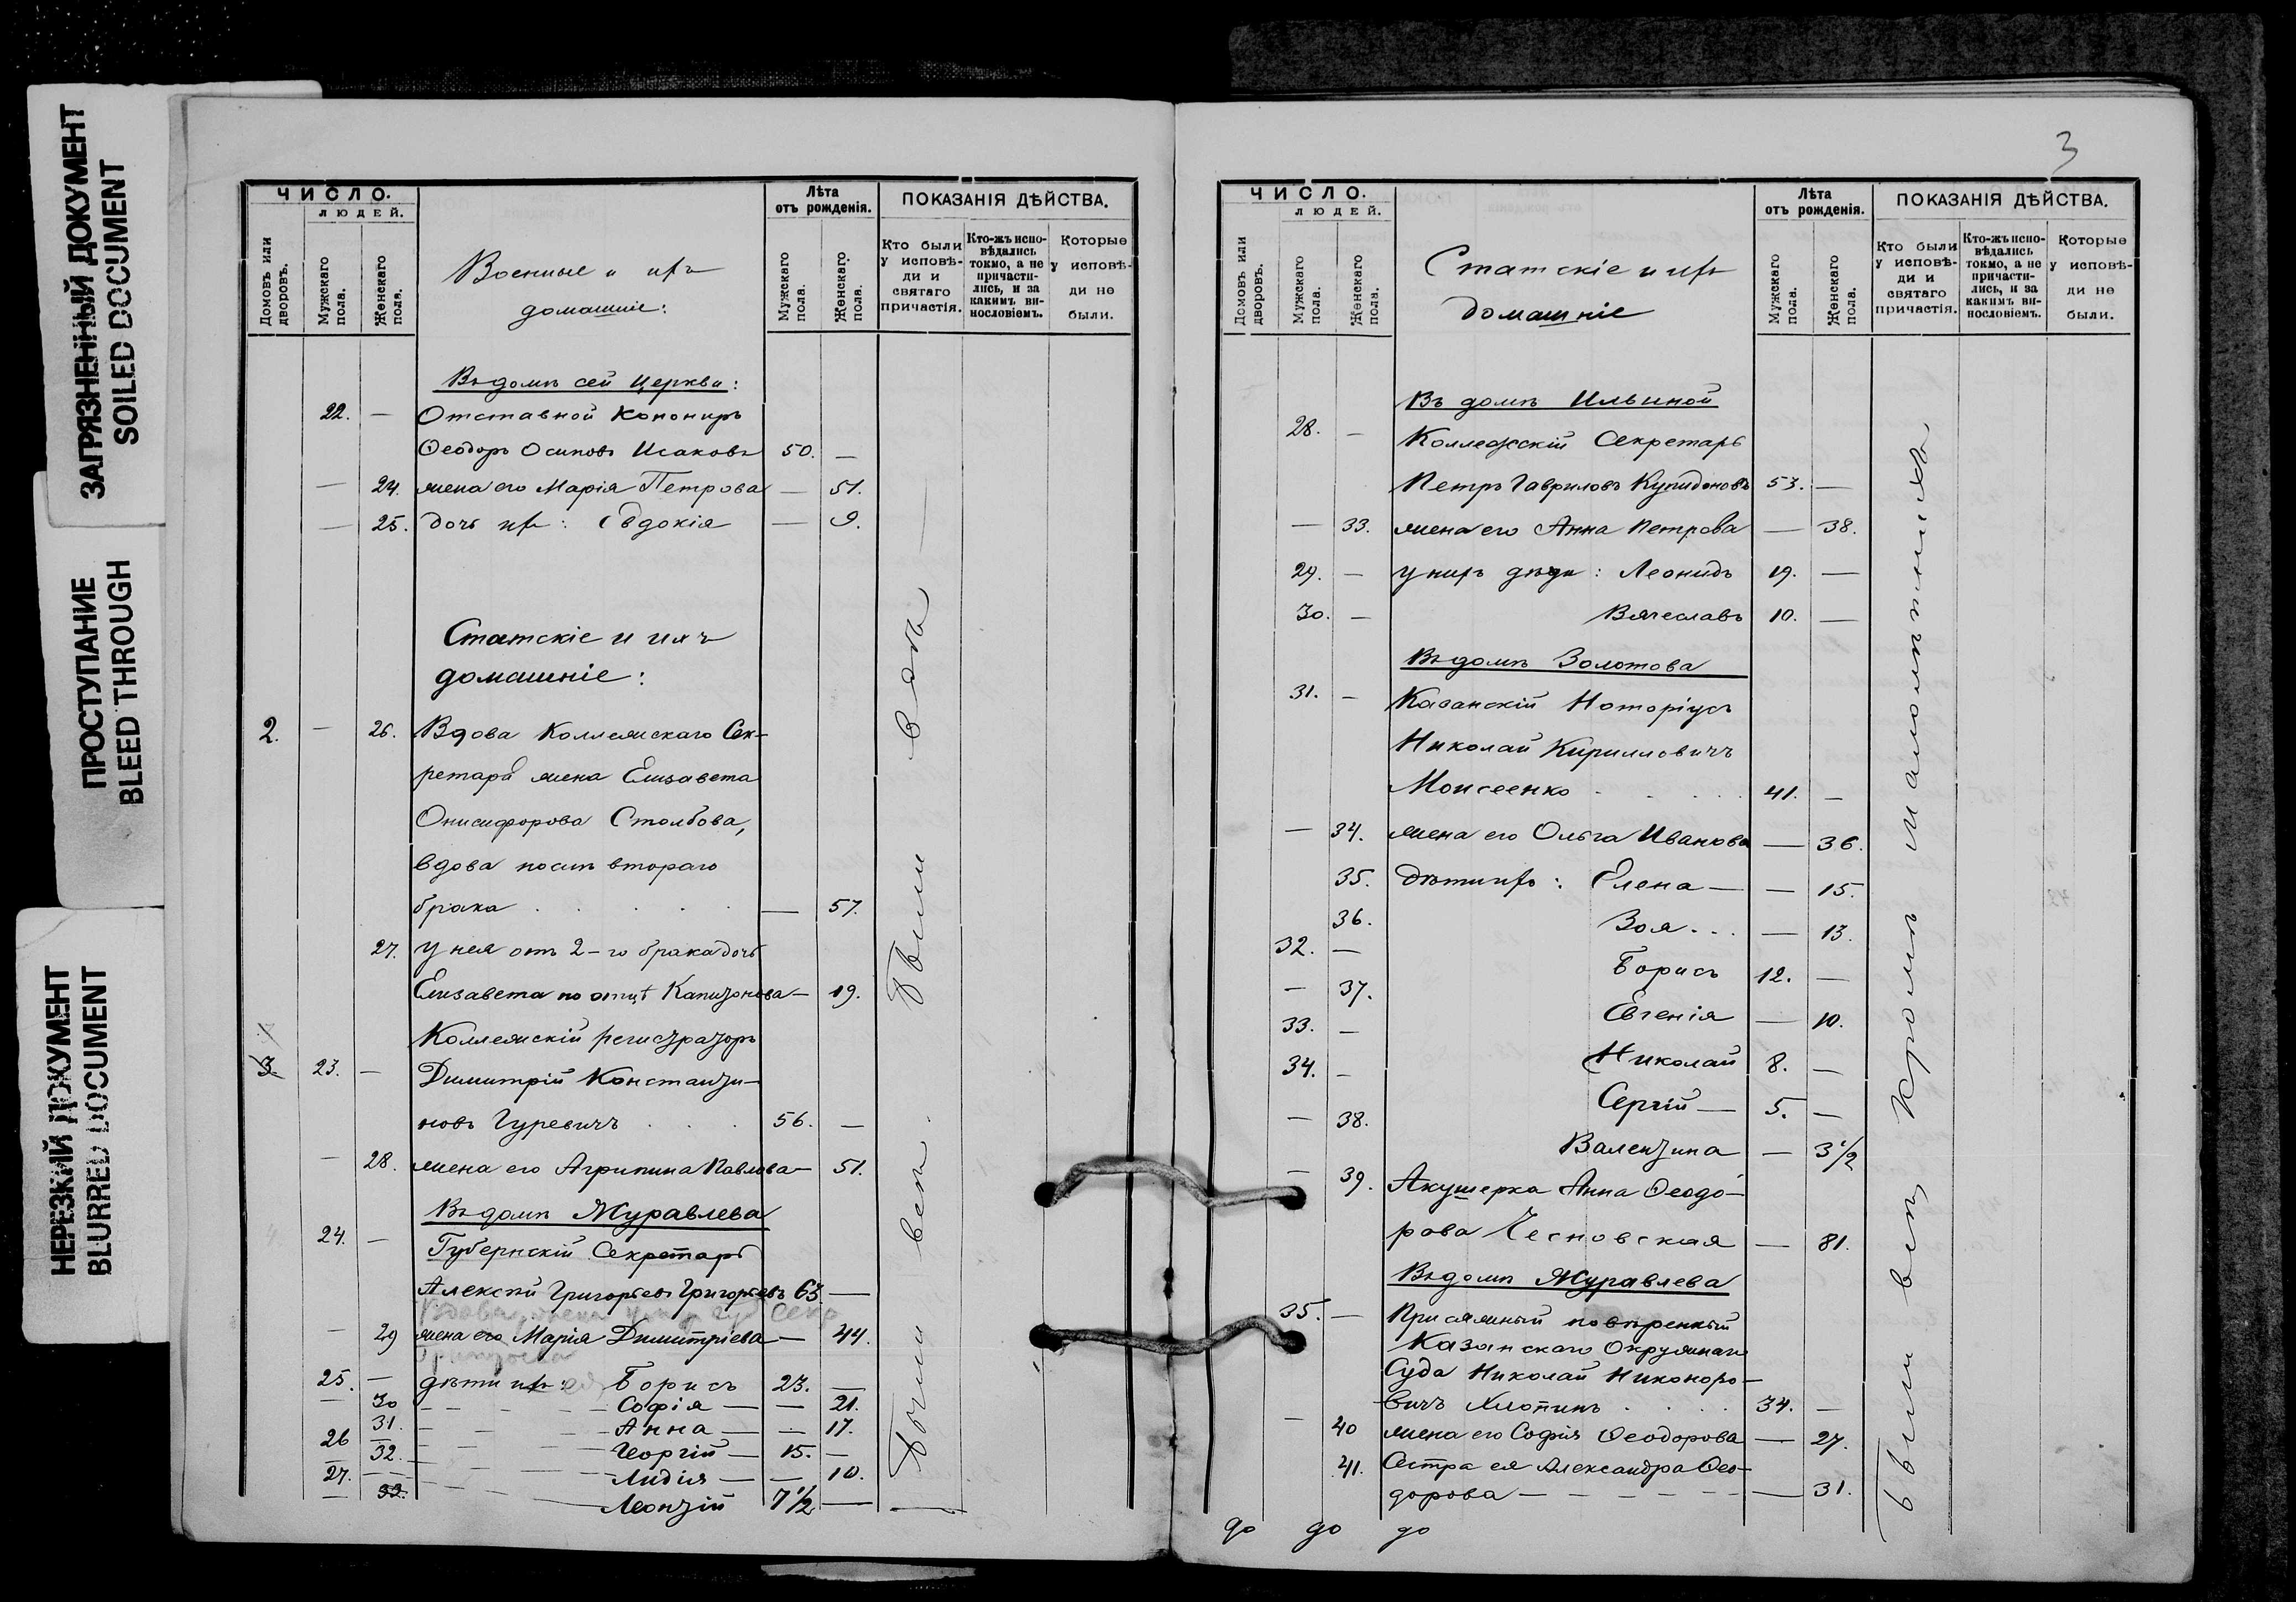 ЗАГРЯЗНЕННЫЙ ДОКУМЕНТ
SOILED DOCUMENT
ПРОСТУПАНИЕ
BLEED THROUGH
НЕРЕЗКИЙ ДОКУМЕНТ
BLURRED DOCUMENT
ЧИСЛО.
людей.
Домовъ или дворовъ.
Мужскаго пола.
Женскаго пола.
Военные и ихъ
домашніе:
Лѣта
отъ рожденія.
Мужскаго пола.
Женскаго пола.
ПОКАЗАНІЯ ДѢЙСТВА.
Кто были у исповѣди и святаго причастія.
Кто-жъ исповѣдались токмо, а не причастились, и за какимъ винословіемъ.
Которые у исповѣди не были.
Въ домѣ сей церкви:
22. — Отставной Канониръ
Ѳеодоръ Осиповъ Исаковъ 50. —
— 24. жена его Марія Петрова — 51.
— 25. дочь ихъ: Евдокія — 9.
Статскіе и ихъ
домашніе:
2. — 26. Вдова Коллежскаго Сек-
ретаря жена Елизавета
Онисифорова Столбова,
вдова послѣ втораго
брака . . . . . — 57.
27. у нея отъ 2-го брака дочь
Елизавета по отцѣ Капитонова — 19.
Коллежскій регистраторъ
3. 23. — Димитрій Константи-
новъ Гуревичъ . . . 56. —
— 28. жена его Агрипина Павлова — 51.
Въ домѣ Журавлева
24. — Губернскій Секретарь
Алексѣй Григорьевъ Григорьевъ 63 —
— 29 жена его Марія Димитріева — 44.
25. — дѣти ихъ: Борисъ 23. —
— 30 Софія — — 21.
31. Анна — — 17.
26 — Георгій — 15. —
— 32. Лидія — — 10.
27. — Леонтій 7 1/2 —
— 33.
Были
всѣ.
Были
3
ЧИСЛО.
людей.
Домовъ или дворовъ.
Мужскаго пола.
Женскаго пола.
Статскіе и ихъ
домашніе
Лѣта
отъ рожденія.
Мужскаго пола.
Женскаго пола.
ПОКАЗАНІЯ ДѢЙСТВА.
Кто были у исповѣди и святаго причастія.
Кто-жъ исповѣдались токмо, а не причастились, и за какимъ винословіемъ.
Которые у исповѣди не были.
Въ домѣ Ильиной
28. — Коллежскій Секретарь
Петръ Гавриловъ Купидоновъ 53. —
— 33. жена его Анна Петрова — 38.
29. — у нихъ дѣти: Леонидъ 19. —
30. — Вячеславъ 10. —
Въ домѣ Золотова
31. — Казанскій Нотаріусъ
Николай Кирилловичъ
Моисеенко . . . . 41. —
— 34. жена его Ольга Иванова — 36.
35. дѣти ихъ: Елена — — 15.
36. Зоя . . . — 13.
32. — Борисъ 12. —
— 37. Евгенія — 10.
33. — Николай 8. —
34. — Сергій — 5. —
— 38. Валентина — 3 1/2
— 39. Акушерка Анна Ѳеодо-
рова Чесновская — 81.
Въ домѣ Журавлева
35. — Присяжный повѣренный
Казанскаго Окружнаго
Суда Николай Никоноро-
вичъ Хлопинъ . . . . 34. —
— 40 жена его Софія Ѳеодорова — 27.
41. Сестра ея Александра Ѳео-
дорова — — — — — 31.
до до до
были всѣ, кромѣ малолѣтнихъ